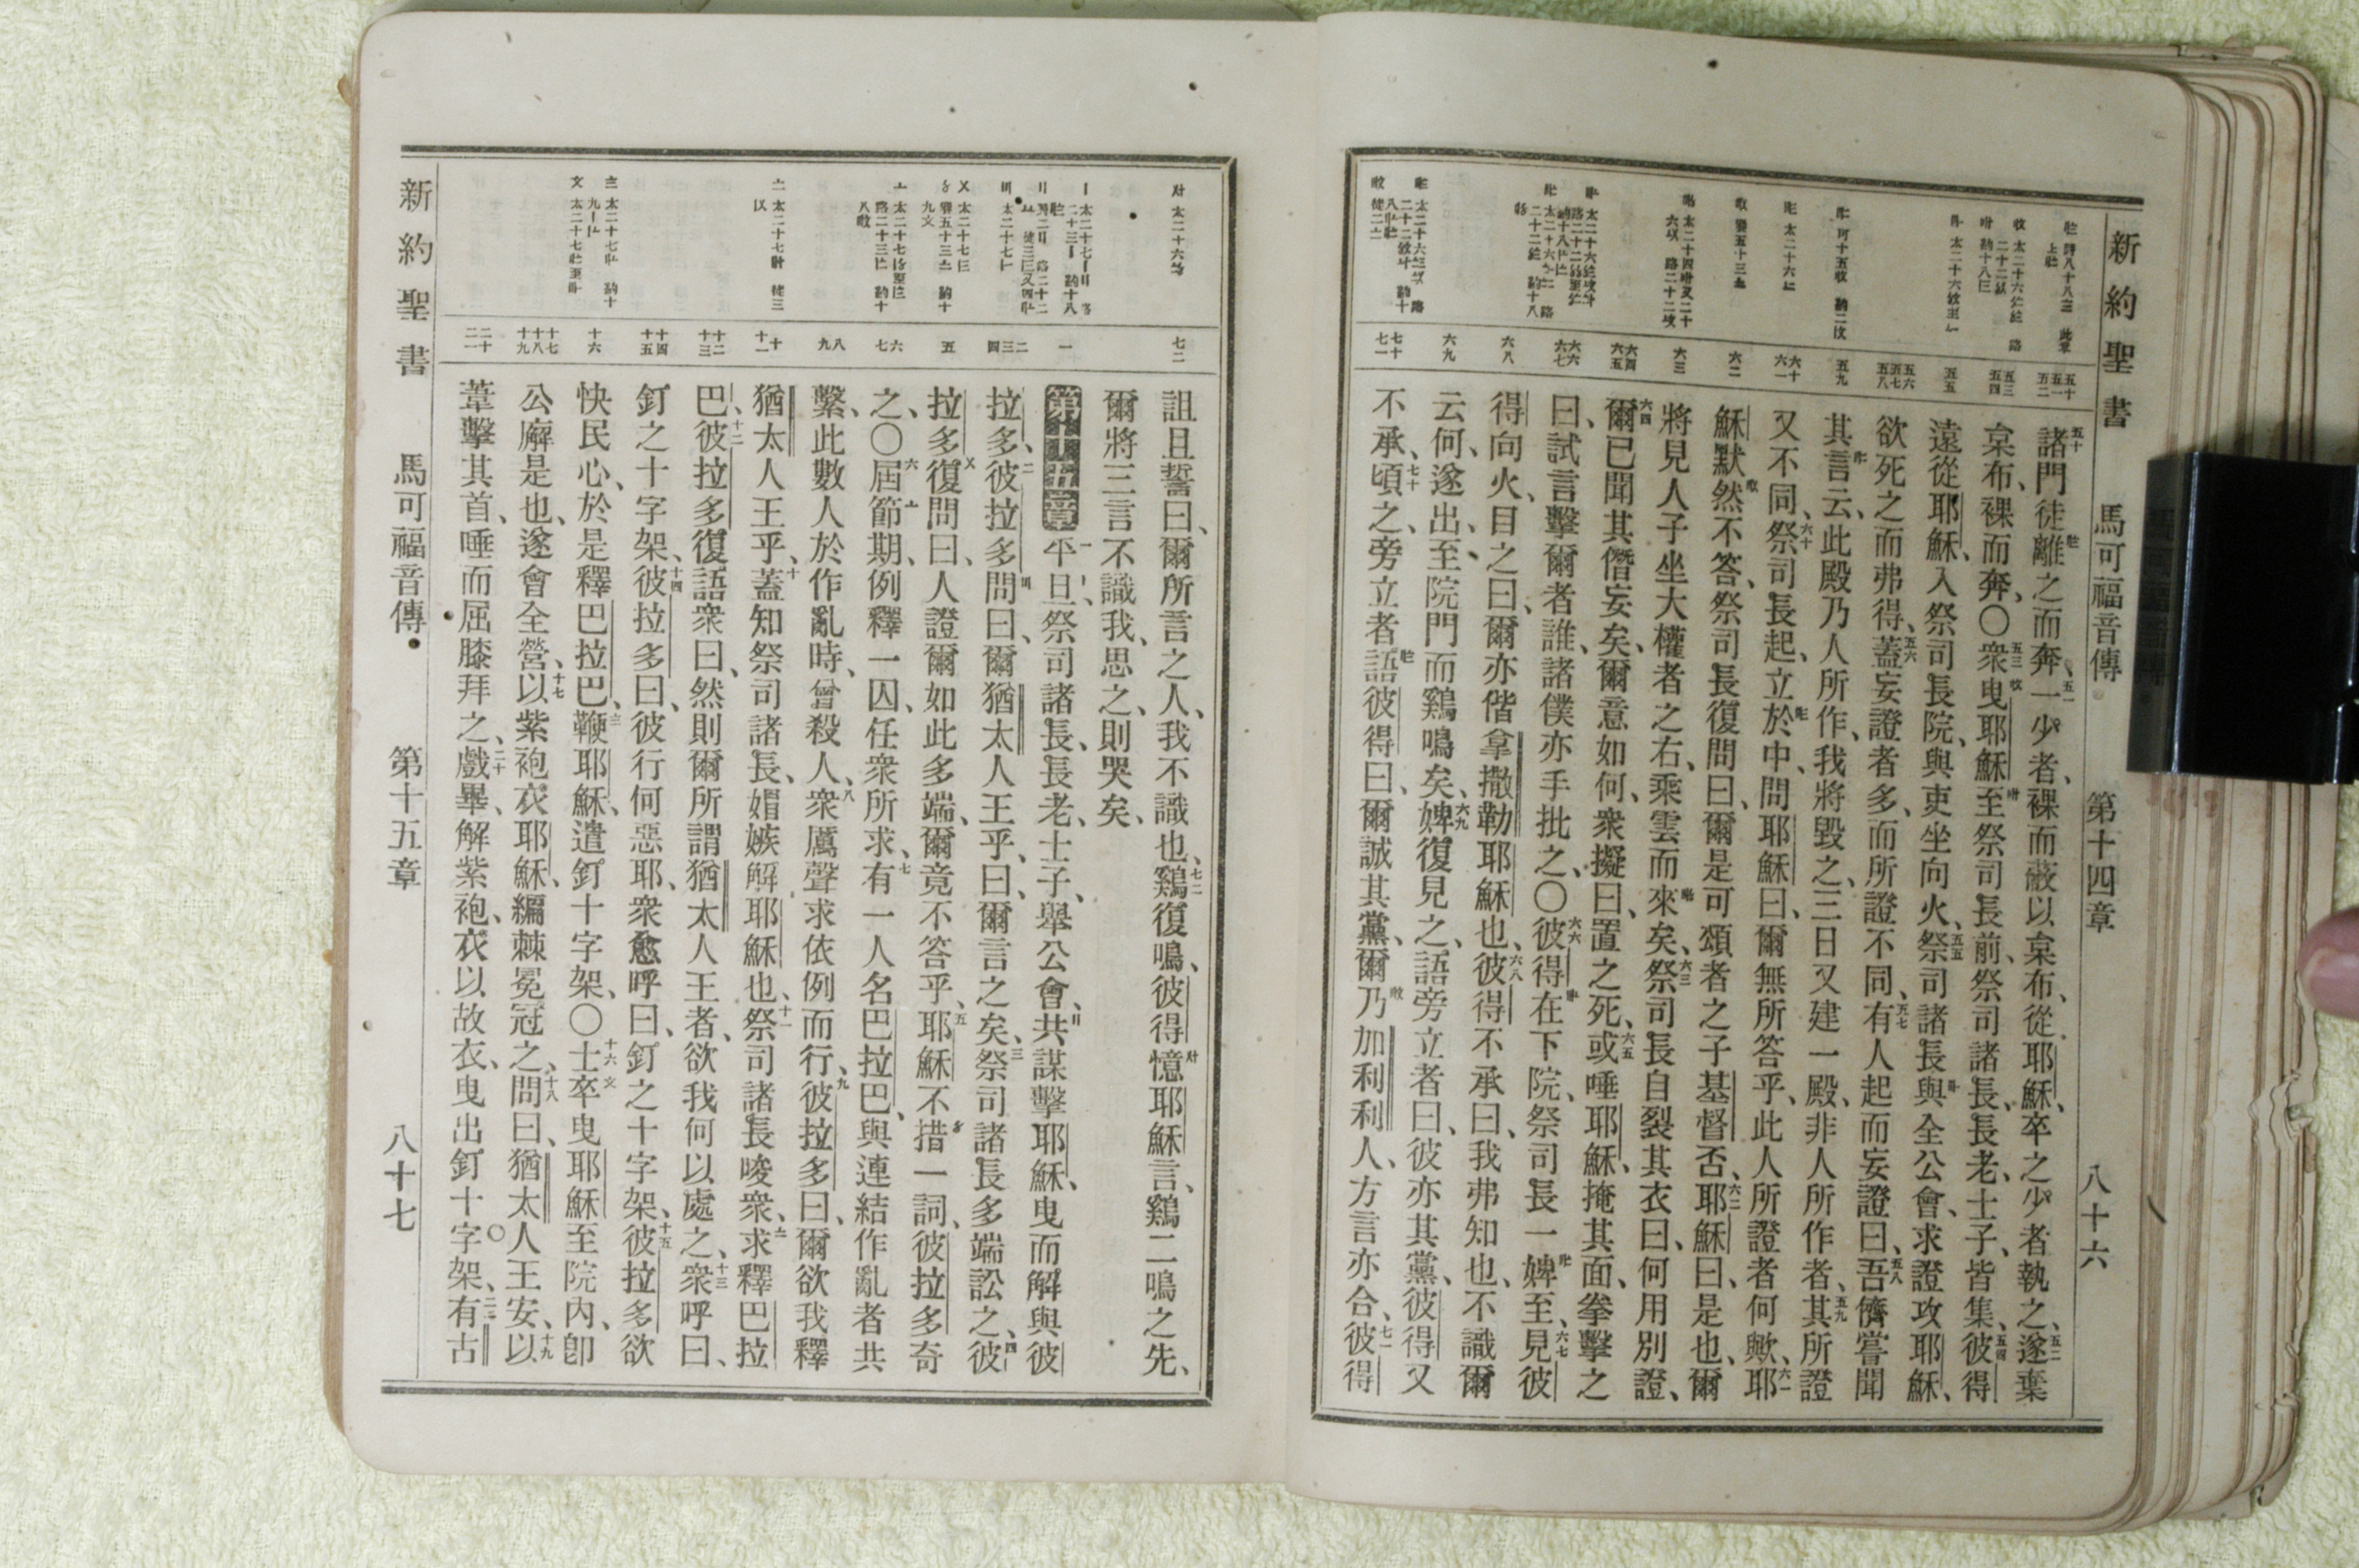 新約聖書 馬可福音傳 第十四章 八十六
諸門徒離之而奔、一少者、裸而蔽以枲布、從耶穌、卒之少者執之、遂棄
枲布、裸而奔、〇衆曳耶穌至祭司長前、祭司諸長、長老、士子、皆集、彼得
遠從耶穌、入祭司長院、與吏坐向火、祭司諸長與全公會、求證攻耶穌、
欲死之而弗得、蓋妄證者多、而所證不同、有人起而妄證曰、吾儕嘗聞
其言云、此殿乃人所作、我將毀之、三日又建一殿、非人所作者、其所證
又不同、祭司長起、立於中、問耶穌曰、爾無所答乎、此人所證者何歟、耶
穌默然不答、祭司長復問曰、爾是可頌者之子基督否、耶穌曰、是也、爾
將見人子坐大權者之右、乘雲而來矣、祭司長自裂其衣曰、何用別證、
爾已聞其僭妄矣、爾意如何、衆擬曰、置之死、或唾耶穌、掩其面、拳擊之
曰、試言擊爾者誰、諸僕亦手批之、〇彼得在下院、祭司長一婢至、見彼
得向火、目之曰、爾亦偕拿撒勒耶穌也、彼得不承曰、我弗知也、不識爾
云何、遂出、至院門而鷄鳴矣、婢復見之、語旁立者曰、彼亦其黨、彼得又
不承、頃之、旁立者語彼得曰、爾誠其黨、爾乃加利利人、方言亦合、彼得
詛且誓曰、爾所言之人、我不識也、鷄復鳴、彼得憶耶穌言、鷄二鳴之先、
爾將三言不識我、思之、則哭矣、
第十五章 平旦、祭司諸長、長老、士子、舉公會、共謀擊耶穌、曳而解與彼
拉多、彼拉多問曰、爾猶太人王乎、曰、爾言之矣、祭司諸長多端訟之、彼
拉多復問曰、人證爾如此多端、爾竟不答乎、耶穌不措一詞、彼拉多奇
之、〇屆節期、例釋一囚、任衆所求、有一人名巴拉巴、與連結作亂者共
繫、此數人於作亂時、曾殺人、衆厲聲求依例而行、彼拉多曰、爾欲我釋
猶太人王乎、蓋知祭司諸長、媢嫉解耶穌也、祭司諸長唆衆、求釋巴拉
巴、彼拉多復語衆曰、然則爾所謂猶太人王者、欲我何以處之、衆呼曰、
釘之十字架、彼拉多曰、彼行何惡耶、衆愈呼曰、釘之十字架、彼拉多欲
快民心、於是釋巴拉巴、鞭耶穌、遣釘十字架、〇士卒曳耶穌至院內、卽
公廨是也、遂會全營、以紫袍衣耶穌、編棘冕冠之、問曰、猶太人王安、以
葦擊其首、唾而屈膝拜之、戲畢、解紫袍、衣以故衣、曳出釘十字架、有古
新約聖書 馬可福音傳 第十五章 八十七